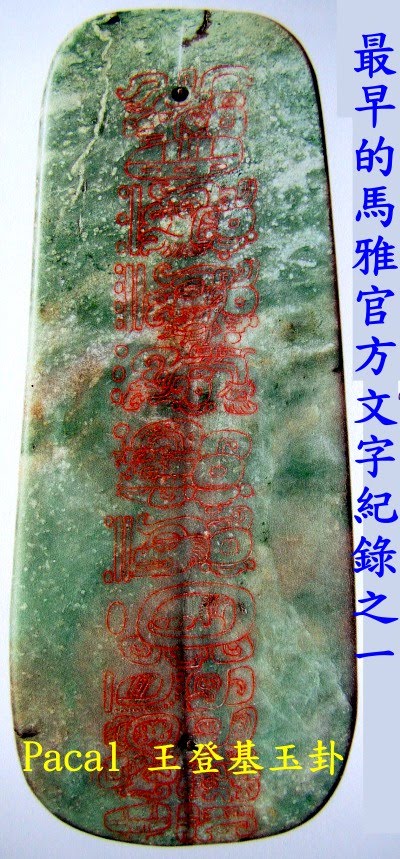 最早的馬雅官方文字紀錄之一
Pacal 王登基玉卦